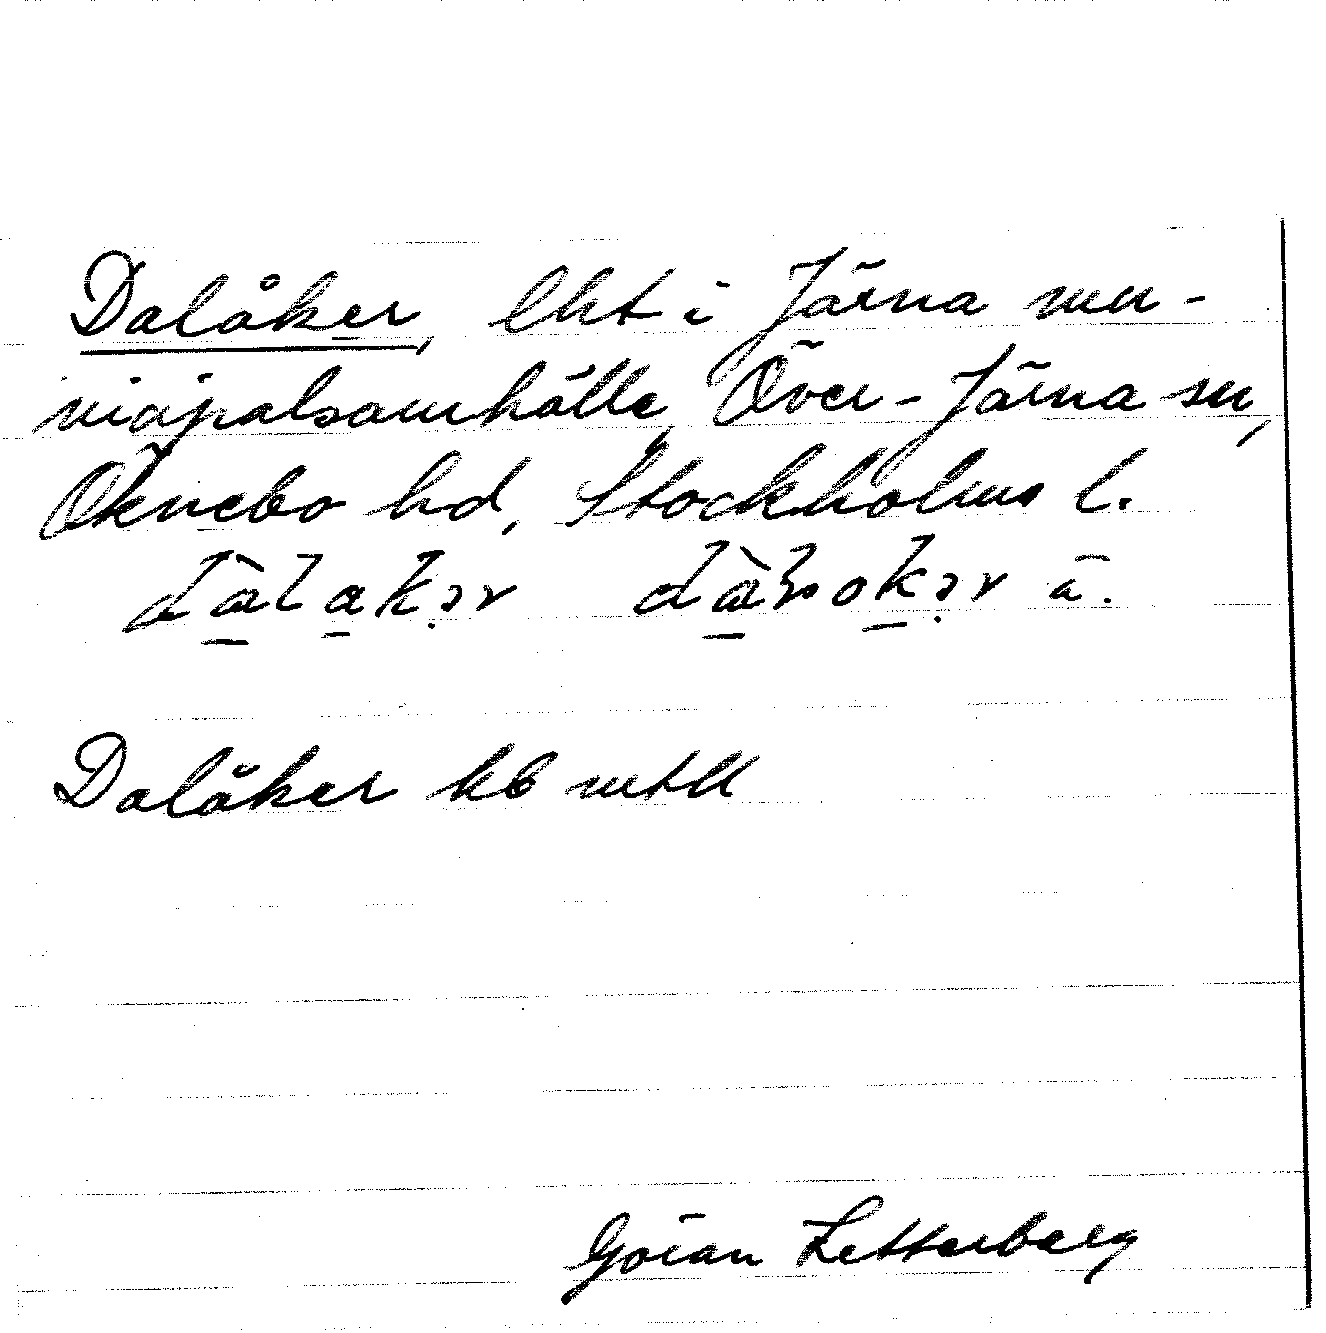 Dalåker, lht i Järna mu-
nicipalsamhälle, Över-Järna sn,
Öknebo hd, Stockholms l.
dàlakər ä.
Dalåker kb mtll
Göran Zetterberg